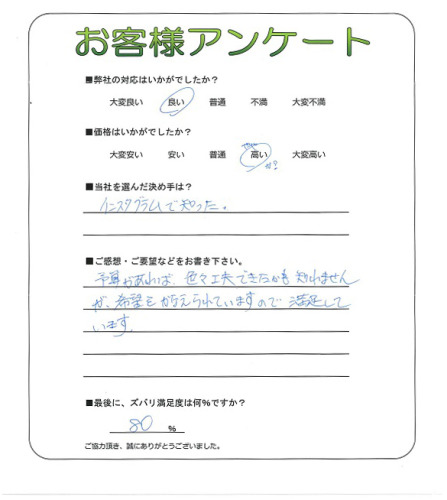 お客様アンケート
■弊社の対応はいかがでしたか?
大変良い 良い 普通 不満 大変不満
■価格はいかがでしたか?
大変安い 安い 普通 高い 大変高い
か?
■当社を選んだ決め手は?
インスタグラムで知った。
■ご感想・ご要望などをお書き下さい。
予算があれば、色々工夫できたかも知れません
が、希望も叶えられていますので満足して
います。
■最後に、ズバリ満足度は何%ですか?
80 %
ご協力頂き、誠にありがとうございました。